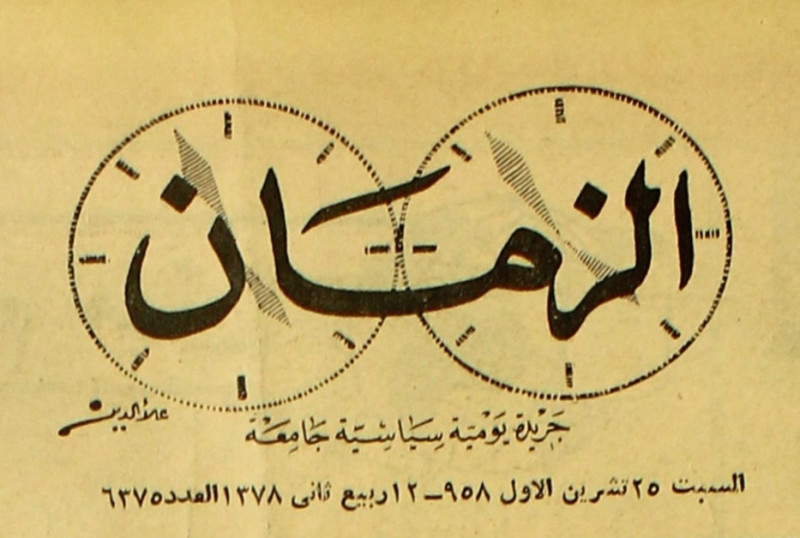 الزمان
علاءالدين
جَرِيْدة يَوْميّة سِيَاسِيّة جَامِعَة
السبت ٢٥ تشرين الاول ٩٥٨ – ١٢ ربيع ثانى ١٣٧٨ العدد ٦٣٧٥